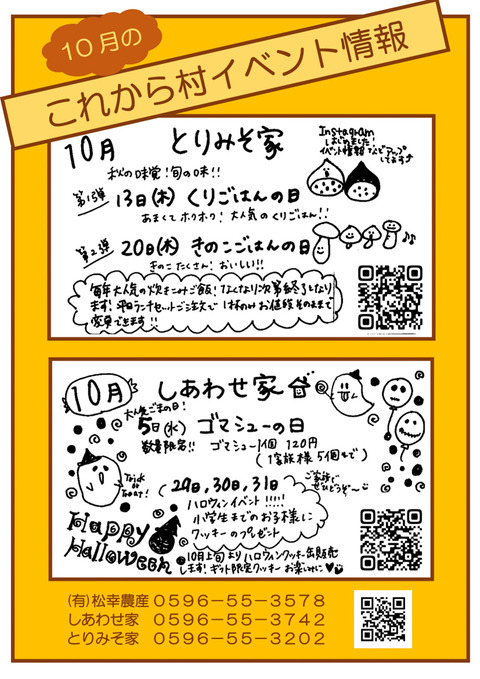 10月の
これから村イベント情報
10月 とりみそ家
Instagram
はじめました!
イベント情報などアップ
してます♪
秋の味覚!旬の味!!
第1弾 13日(木) くりごはんの日
あまくてホクホク!大人気のくりごはん!!
第2弾 20日(木) きのこごはんの日
きのこたくさん!おいしい!!
毎年大人気の炊きこみご飯!なくなり次第終了となり
ます!平日ランチセットご注文で1杯のみお値段そのままで
変更できます!!
10月 しあわせ家
大人気ごまの日!
5日(水) ゴマシューの日
数量限定!! ゴマシュー1個 120円
(1家族様 5個まで)
Trick
or
Treat!
29日,30日,31日
ご家族で
ぜひどうぞ~
ハロウィンイベント!!!!!
小学生までのお子様に
クッキーのプレゼント
Happy
Halloween
10月上旬よりハロウィンクッキー缶販売
します!ギフト限定クッキーお楽しみに♥
(有)松幸農産 0596-55-3578
しあわせ家 0596-55-3742
とりみそ家 0596-55-3202